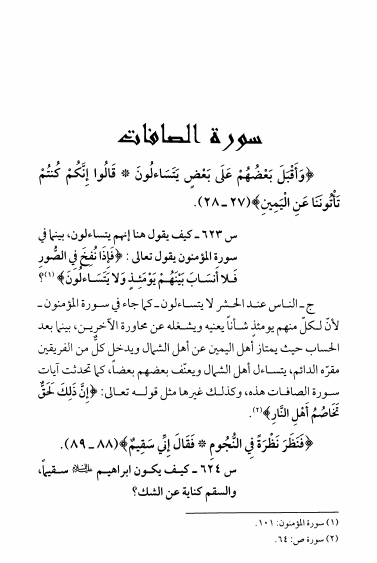 سورة الصافات
﴿وَأَقْبَلَ بَعْضُهُمْ عَلَى بَعْضٍ يَتَسَاءَلُونَ * قَالُوا إِنَّكُمْ كُنْتُمْ
تَأْتُونَنَا عَنِ الْيَمِينِ﴾(٢٧ ـ ٢٨).
س ٦٢٣ ـ كيف يقول هنا إنهم يتساءلون، بينما في
سورة المؤمنون يقول تعالى: ﴿فَإِذَا نُفِخَ فِي الصُّورِ
فَلاَ أَنسَابَ بَيْنَهُمْ يَوْمَئِذٍ وَلاَ يَتَسَاءَلُونَ﴾(١)؟
ج ـ الناس عند الحشر لا يتساءلون ـ كما جاء في سورة المؤمنون ـ
لأنّ لكلّ منهم يومئذٍ شأناً يعنيه ويشغله عن محاورة الآخرين، بينما بعد
الحساب حيث يمتاز أهل اليمين عن أهل الشمال ويدخل كلٌّ من الفريقين
مقرّه الدائم، يتساءل أهل الشمال ويعنّف بعضهم بعضاً، كما تحدثت آيات
سورة الصافات هذه، وكذلك غيرها مثل قوله تعالى: ﴿إِنَّ ذَلِكَ لَحَقٌّ
تَخَاصُمُ أَهْلِ النَّارِ﴾(٢).
﴿فَنَظَرَ نَظْرَةً فِي النُّجُومِ * فَقَالَ إِنِّي سَقِيمٌ﴾(٨٨ ـ ٨٩).
س ٦٢٤ ـ كيف يكون ابراهيم سقيماً،
والسقم كناية عن الشك؟
(١) سورة المؤمنون: ١٠١.
(٢) سورة ص: ٦٤.